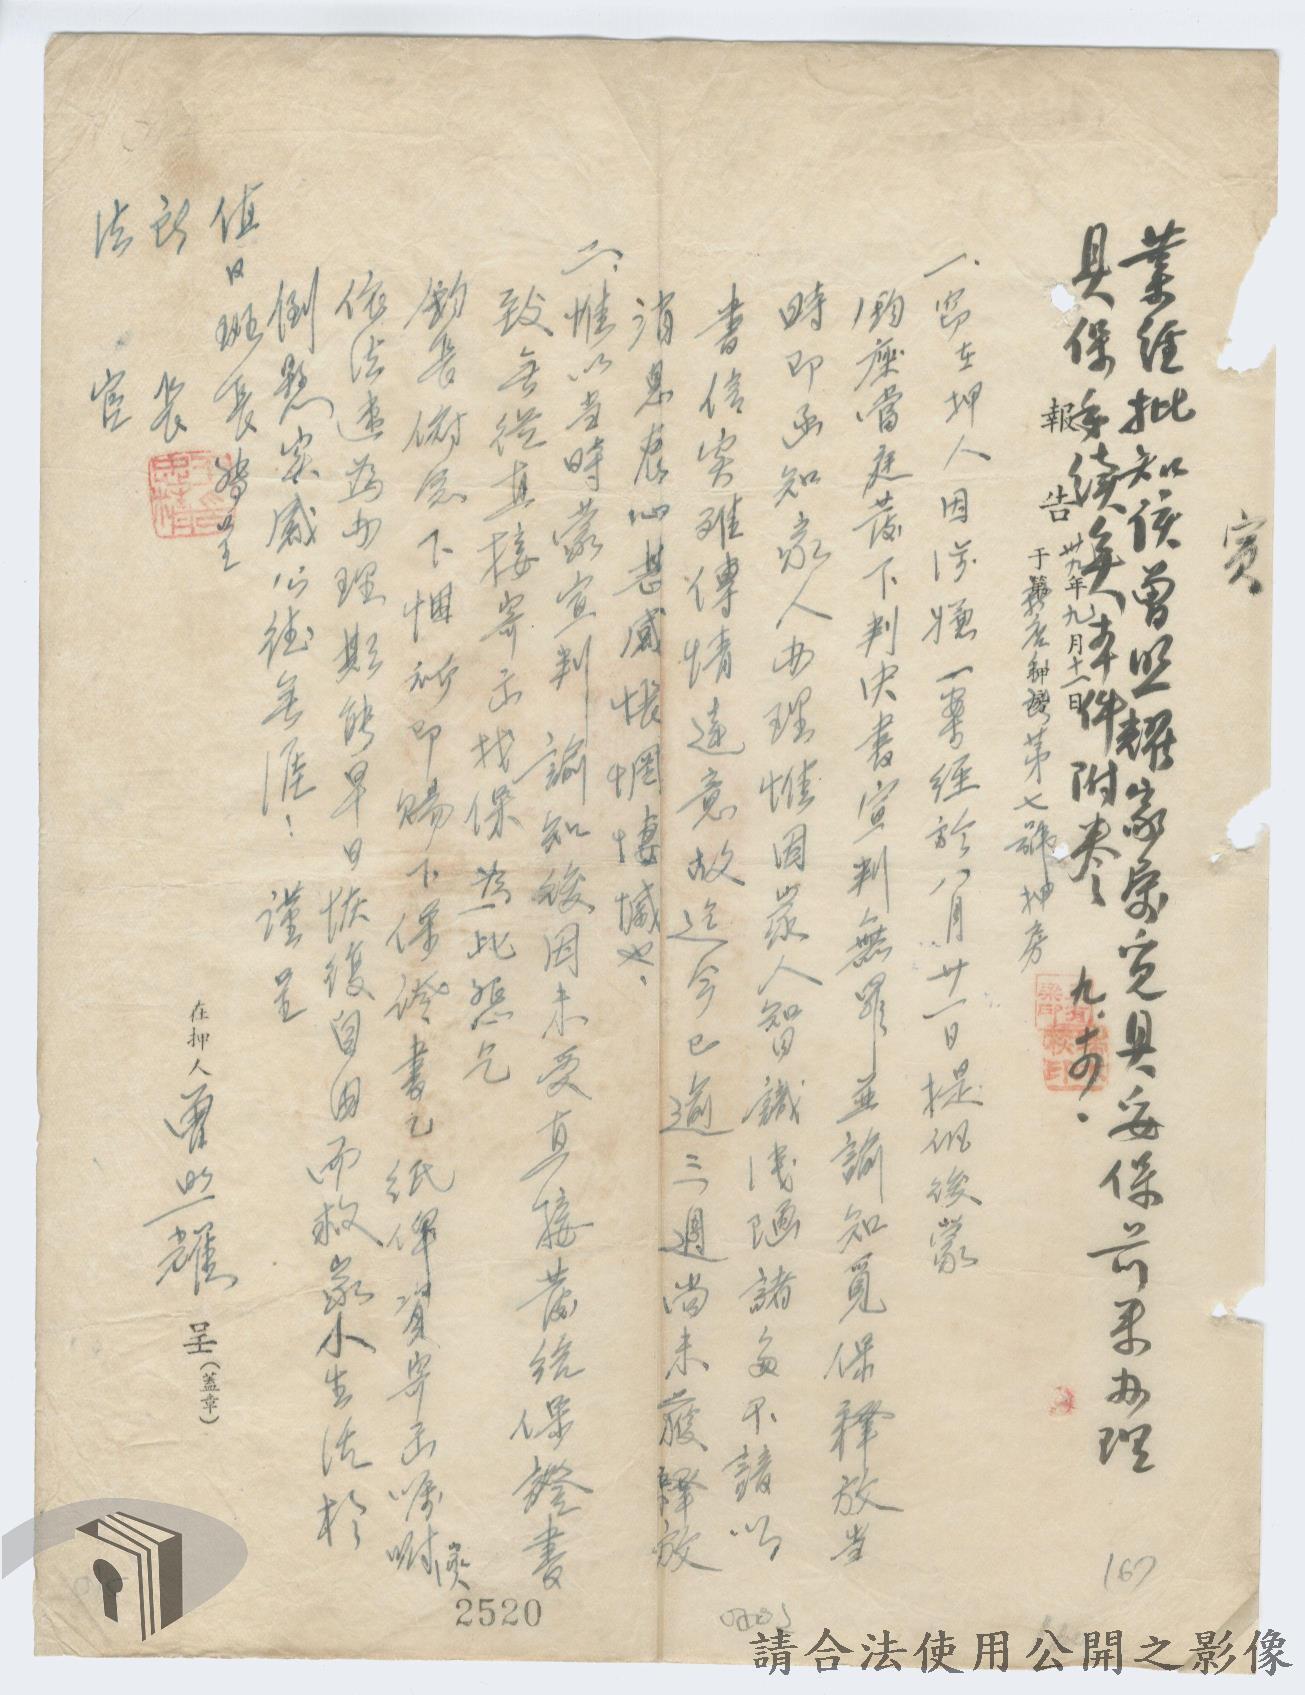 業經批知該曾照耀家屬覓具妥保前來辦理
具保手續矣本件附卷 九.
報告 卅九年九月十一日
于 第七號押房
一、窃在押人因涉嫌一案經於八月廿一日提訊後蒙
鈞座當庭發下判決書宣判無罪並諭知覓保釋放当
時即函知家人办理惟因家人智識淺陋諸多不諳以
書信实难傳情達意故迄今已逾三週尚未獲釋放
消息衷心甚感悵惘悽慽也、
二、惟以当時蒙宣判諭知後因未受直接發給保證書
致無從直接寄函找保為此懇乞
鈞長俯念下悃祈即賜下保證書乙紙俾資寄函嘱咐
依法速為办理期能早日恢復自由而救家小生活於
倒懸实感公德無涯！ 謹呈
值日班長 轉呈
所長
法官
在押人 曾照耀 呈（蓋章）
2520
167
請合法使用公開之影像